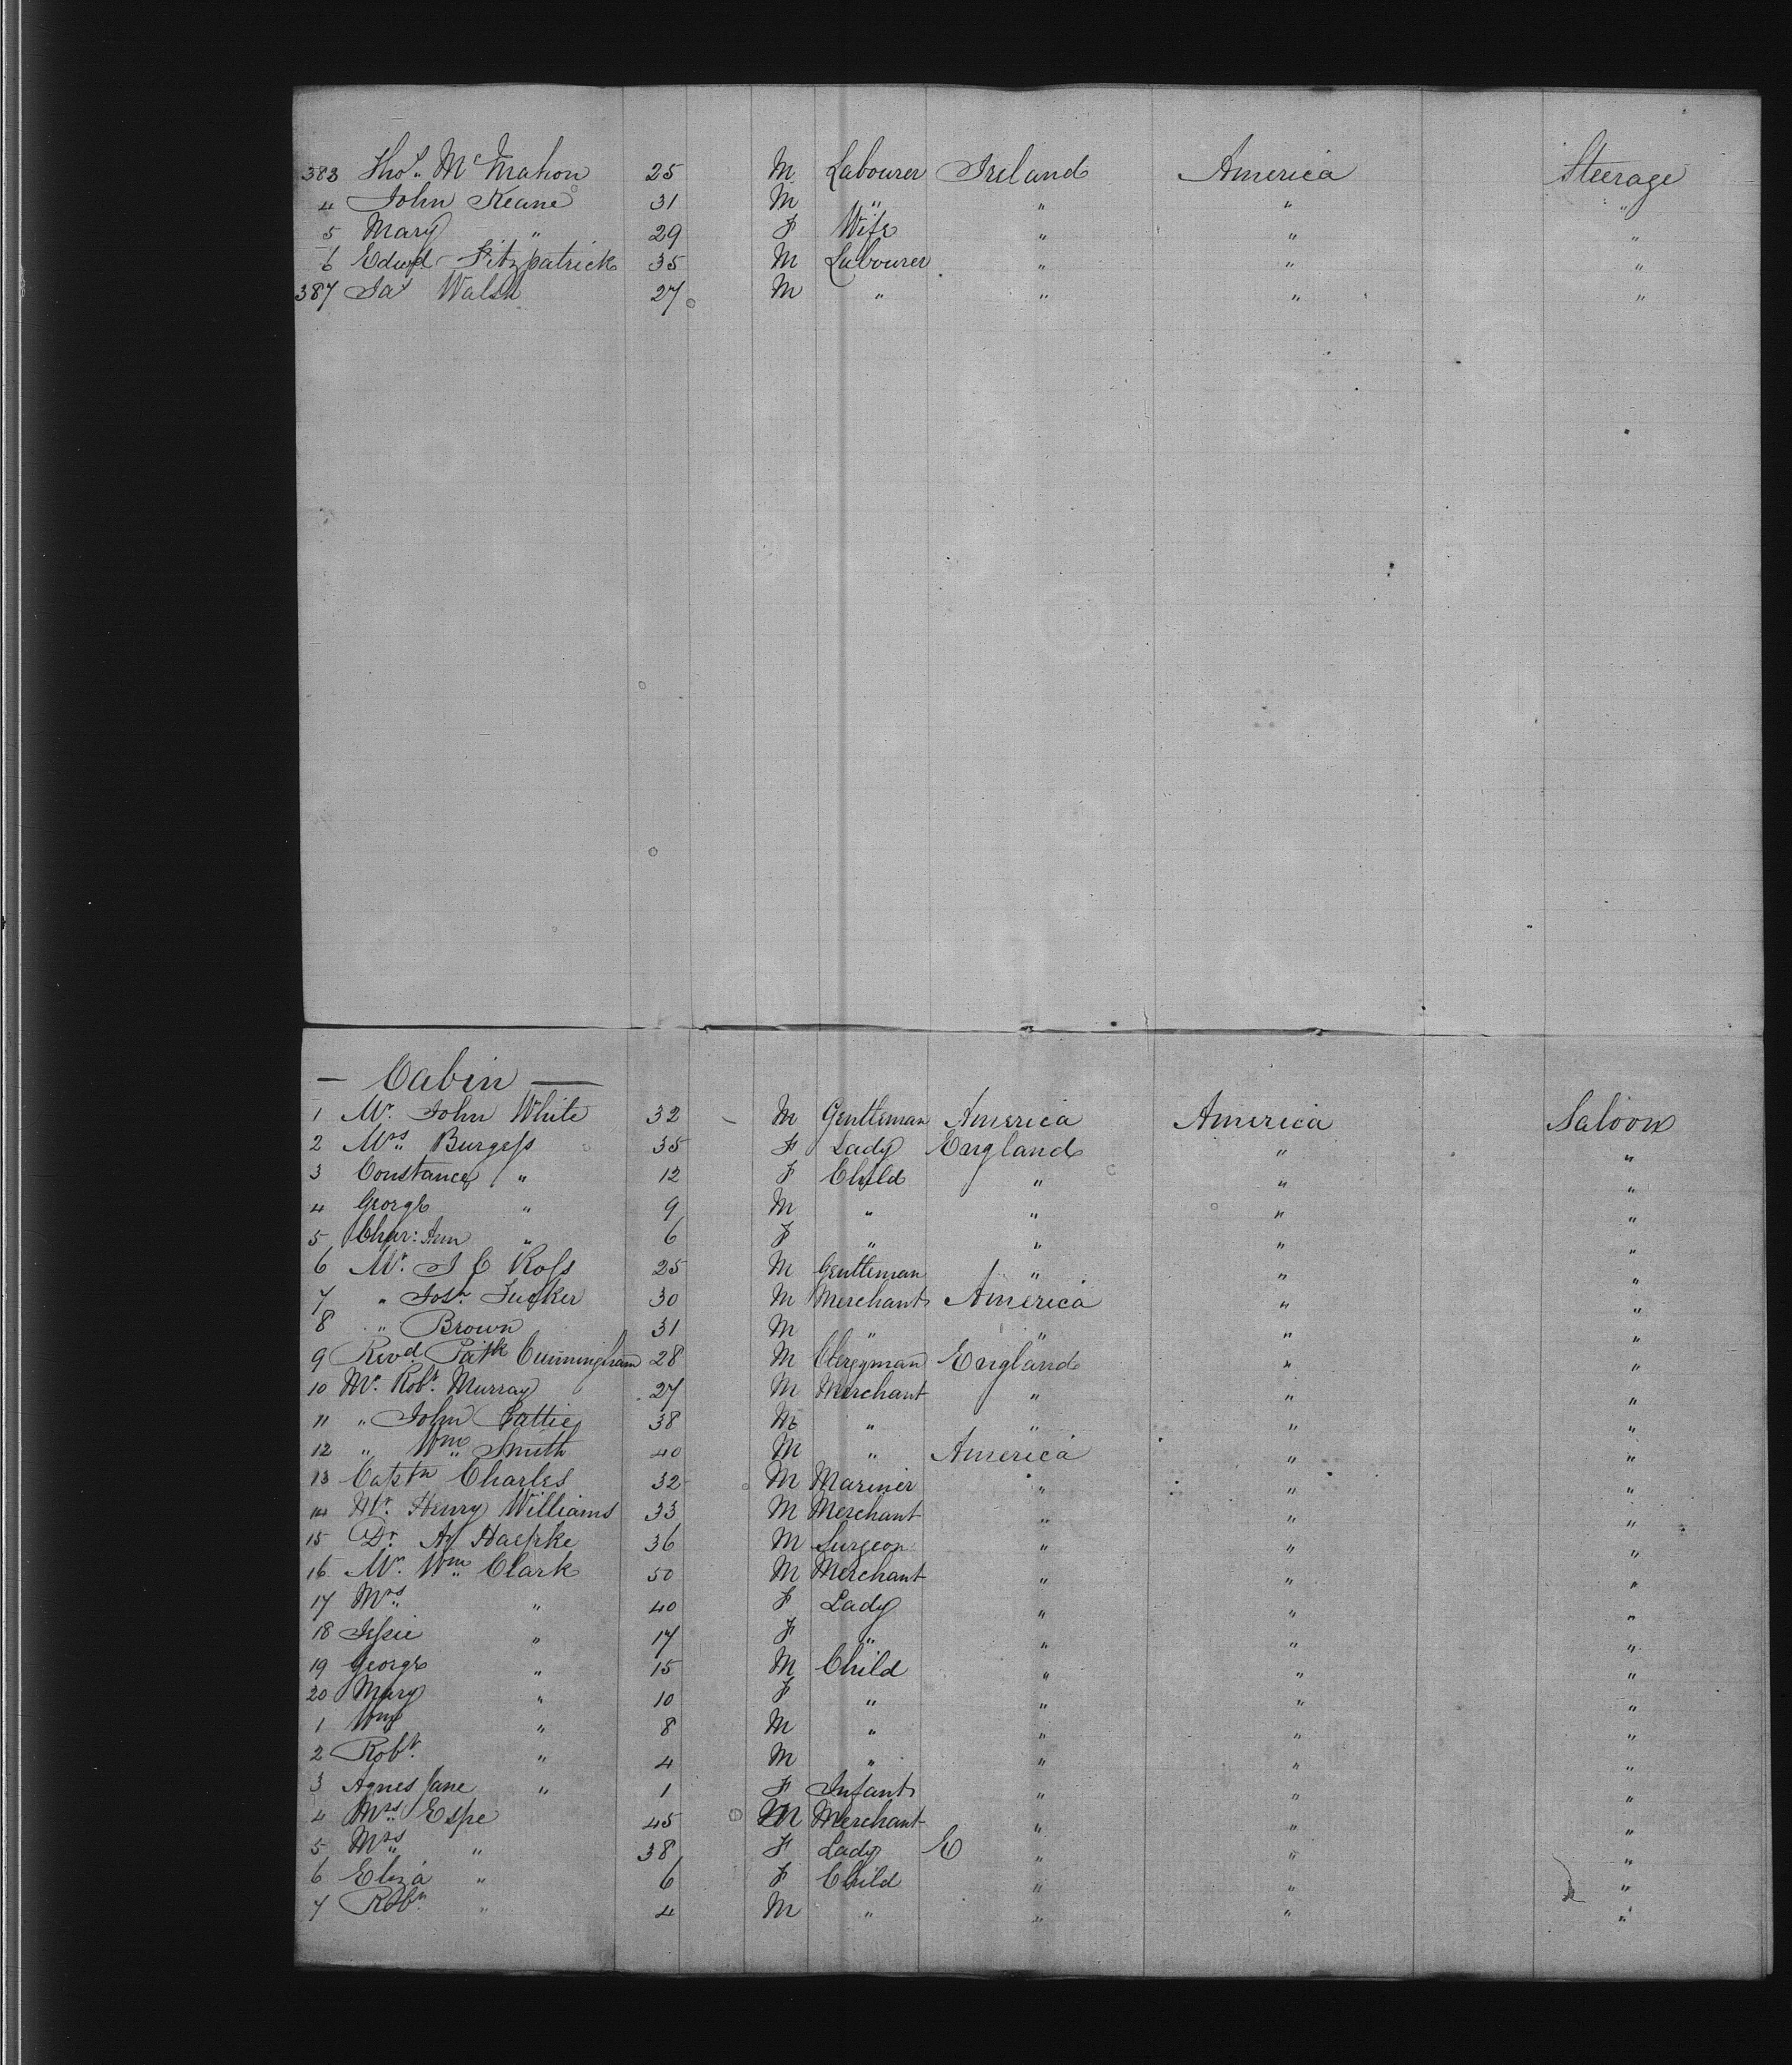 383 Thos. McMahon 25 M Labourer Ireland America Steerage
4 John Keane 31 M " " " "
5 Mary " 29 F Wife " " "
6 Edwd Fitzpatrick 35 M Labourer " " "
387 Jas Walsh 27 M " " " "
— Cabin —
1 Mr. John White 32 M Gentleman America America Saloon
2 Mrs. Burgess 35 F Lady England " "
3 Constance " 12 F Child " " "
4 George " 9 M " " " "
5 Char: Ann " 6 F " " " "
6 Mr. J C Ross 25 M Gentleman " " "
7 " Josh. Tucker 30 M Merchant America " "
8 " Brown 31 M " " " "
9 Revd. Patk Cunningham 28 M Clergyman England " "
10 Mr. Robt. Murray 27 M Merchant " " "
11 " John 38 M " " " "
12 " Wm. Smith 40 M " America " "
13 Captn Charles 32 M Mariner " " "
14 Mr. Henry Williams 33 M Merchant " " "
15 Dr. Haepke 36 M Surgeon " " "
16 Mr. Wm. Clark 50 M Merchant " " "
17 Mrs. " 40 F Lady " " "
18 Jessie " 17 F " " " "
19 George " 15 M Child " " "
20 Mary " 10 F " " " "
1 Wm " 8 M " " " "
2 Robt. " 4 M " " " "
3 Agnes Jane " 1 F Infant " " "
4 Mrs. Espe 45 M Merchant " " "
5 Mrs. " 38 F Lady E " " "
6 Eliza " 6 F Child " " "
7 Robt. " 4 M " " " "